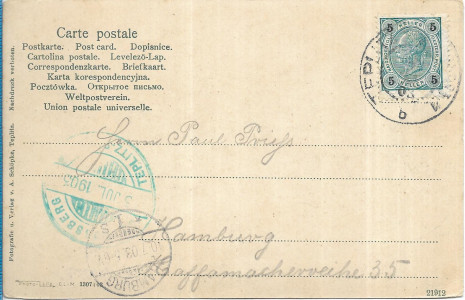 Carte postale
Postkarte. Post card. Dopisnice.
Cartolina postale. Levelező-Lap.
Correspondenzkarte. Briefkaart.
Karta korespondencyjna.
Pocztówka. Открытое письмо.
Weltpostverein.
Union postale universelle.
Nachdruck verboten.
Fotografie u. Verlag v. A. Schöpke, Teplitz.
5 5
HELLER
5 5
TEPLI
b
Herrn Paul Prieß
TEPLITZ
JUL. 1903
SBERG
HAMBURG
Hamburg
Caffamacherreihe 35
1307
21912